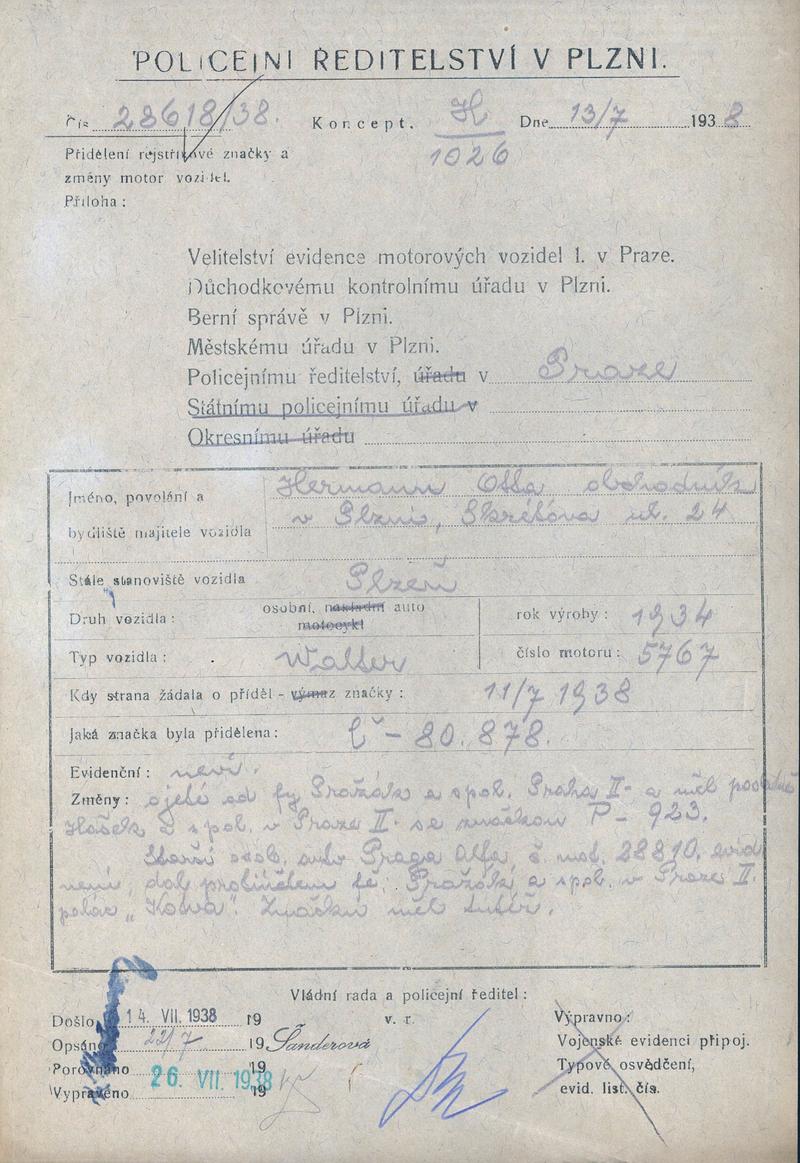 POLICEJNÍ ŘEDITELSTVÍ V PLZNI.
Čís. 28618/38. Koncept. H 1026 Dne 13/7 1938
Přidělení rejstříkové značky a
změny motor vozidel.
Příloha :
Velitelství evidence motorových vozidel I. v Praze.
Důchodkovému kontrolnímu úřadu v Plzni.
Berní správě v Plzni.
Městskému úřadu v Plzni.
Policejnímu ředitelství, úřadu v Praze
Státnímu policejnímu úřadu v
Okresnímu úřadu
Jméno, povolání a Hermann Otta obchodník
bydliště majitele vozidla v Plzni, Skrétova ul. 24
Stálé stanoviště vozidla Plzeň
Druh vozidla : osobní, nákladní auto
motocykl
rok výroby : 1934
Typ vozidla : Walter číslo motoru : 5767
Kdy strana žádala o příděl - výmaz značky : 11/7 1938
Jaká značka byla přidělena : Č - 80.878.
Evidenční : není.
Změny : ojeté od fy Pražák a spol. Praha II. a měl
Hašek a spol. v Praze II. se značkou P - 923.
Starší osob. auto Praga Alfa, č. mot. 28810, evid
není, dal protiúčtem fě. Pražák a spol. v Praze II.
palác „Kotva". Značku měl tutéž.
Vládní rada a policejní ředitel :
Došlo 14. VII. 1938 19 v. r. Výpravno :
Opsáno 22/7 19 Šanderová Vojenské evidenci připoj.
Porovnáno 19 Typové osvědčení,
Vypraveno 26. VII. 1938 19 evid. list. čís.